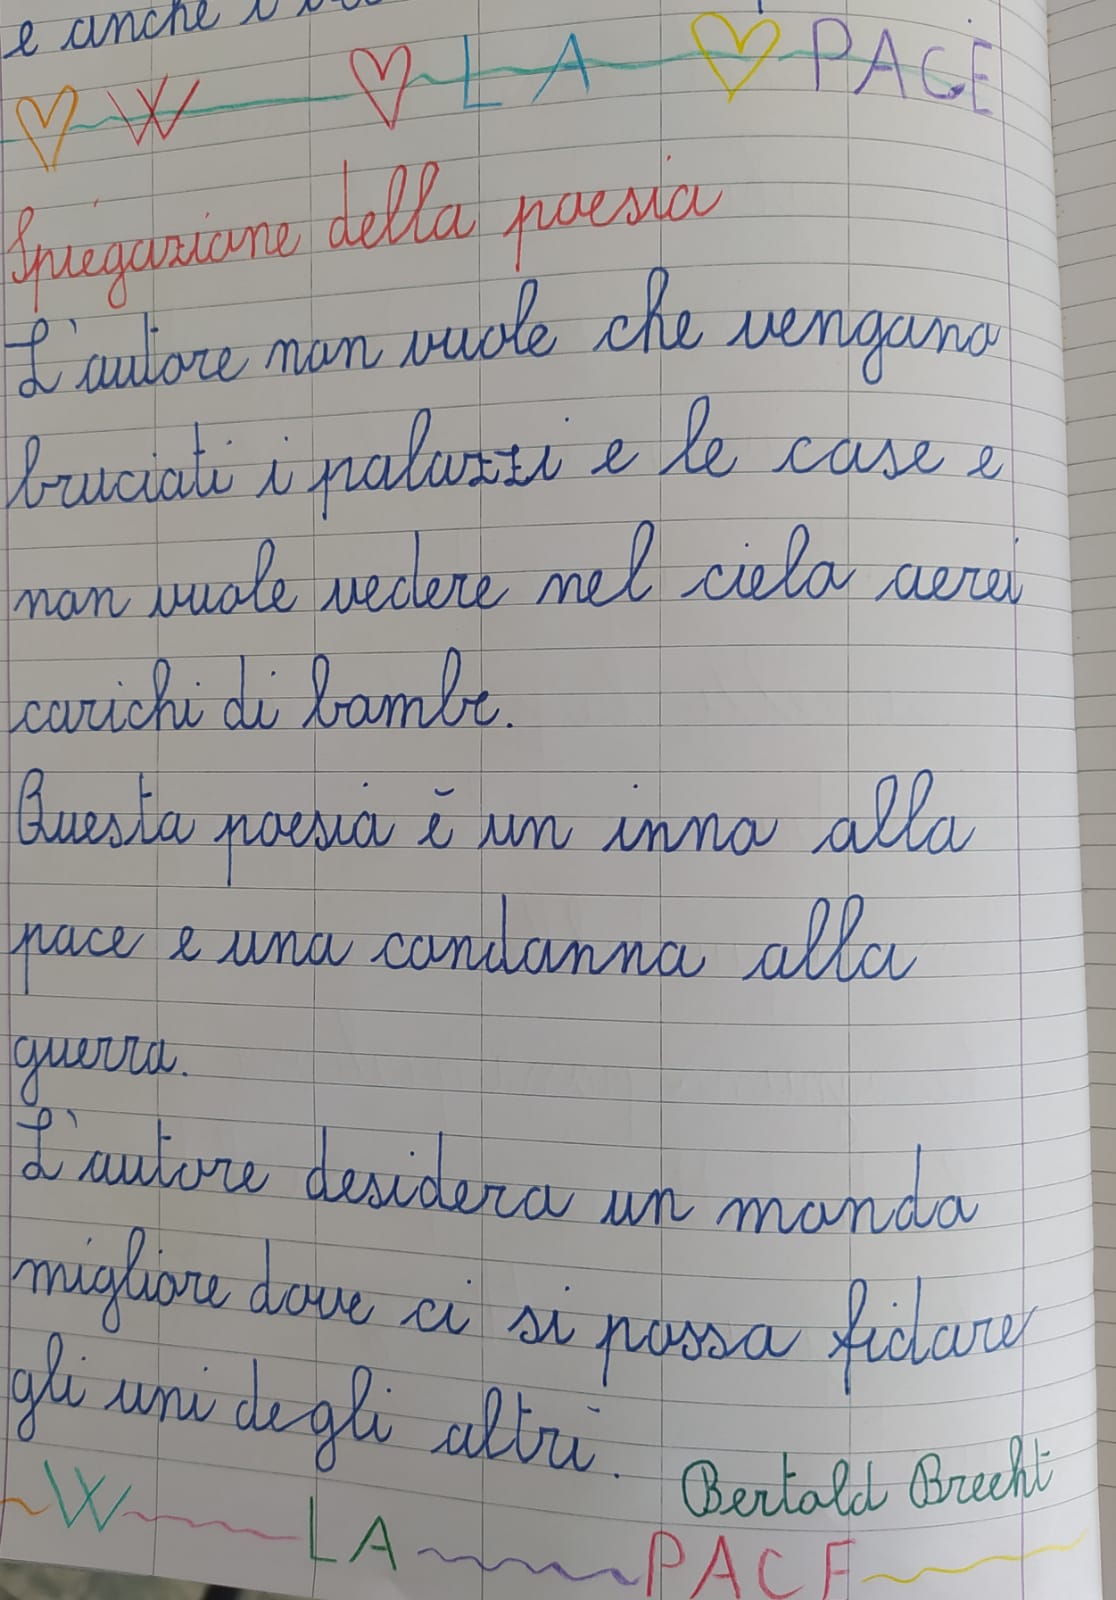 e anche i
W LA PACE
Spiegazione della poesia
L'autore non vuole che vengano
bruciati i palazzi e le case e
non vuole vedere nel cielo aerei
carichi di bombe.
Questa poesia è un inno alla
pace e una condanna alla
guerra.
L'autore desidera un mondo
migliore dove ci si possa fidare
gli uni degli altri.
Bertold Brecht
W LA PACE